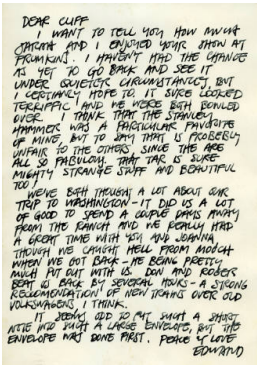 DEAR CLIFF
I WANT TO TELL YOU HOW MUCH
AND I ENJOYED YOUR SHOW AT
FRUMKINS. I HAVEN'T HAD THE CHANCE
AS YET TO GO BACK AND SEE IT
UNDER QUIETER CIRCUMSTANCES, BUT
I CERTAINLY HOPE TO. IT SURE LOOKED
TERRIFFIC AND WE WERE BOTH BOWLED
OVER. I THINK THAT THE STANLEY
HAMMER WAS A PARTICULAR FAVORITE
OF MINE BUT TO SAY THAT IS PROBERLY
UNFAIR TO THE OTHERS SINCE THE ARE
ALL SO FABULOUS. THAT TAR IS SURE
MIGHTY STRANGE STUFF AND BEAUTIFUL
TOO.
WE'VE BOTH THOUGHT A LOT ABOUT OUR
TRIP TO WASHINGTON - IT DID US A LOT
OF GOOD TO SPEND A COUPLE DAYS AWAY
FROM THE RANCH AND WE REALLY HAD
A GREAT TIME WITH YOU AND JOANNA
THOUGH WE CAUGHT HELL FROM MOOCH
WHEN WE GOT BACK - HE BEING PRETTY
MUCH PUT OUT WITH US. DON AND ROGER
BEAT US BACK BY SEVERAL HOURS - A STRONG
RECCOMENDATION OF NEW TRAINS OVER OLD
VOLKSWAGENS, I THINK.
IT SEEMS ODD TO PUT SUCH A SHORT
NOTE INTO SUCH A LARGE ENVELOPE, BUT THE
ENVELOPE WAS DONE FIRST. PEACE & LOVE
EDMUND